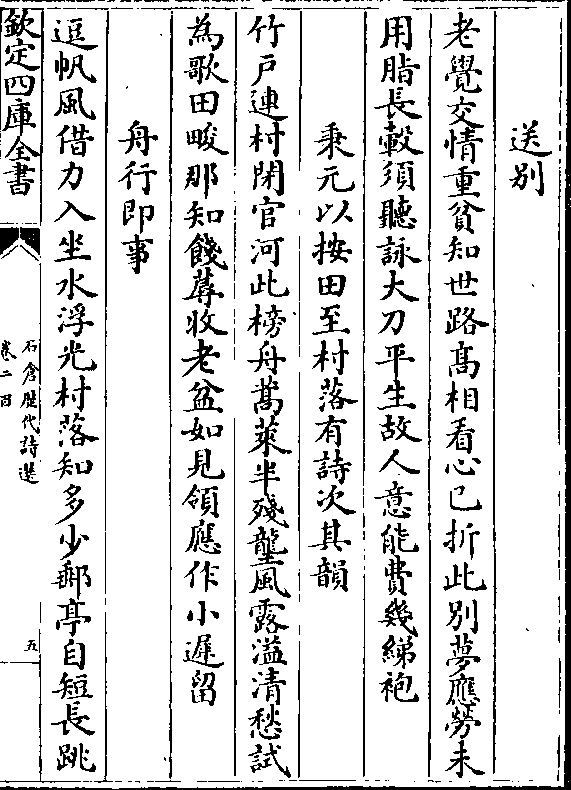 送别
老覺交情重貧知世路髙相看心已折此别夢應勞未
用脂長轂須聽詠大刀平生故人意能費幾綈袍
秉元以按田至村落有詩次其韻
竹戸連村閉官河此榜舟蒿萊半殘壟風露溢清愁試
為歌田畯那知餞蓐收老盆如見領應作小遲留
舟行即事
逗帆風借力入坐水浮光村落知多少郵亭自短長跳
欽定四庫全書
石倉歴代詩選
卷二百
五